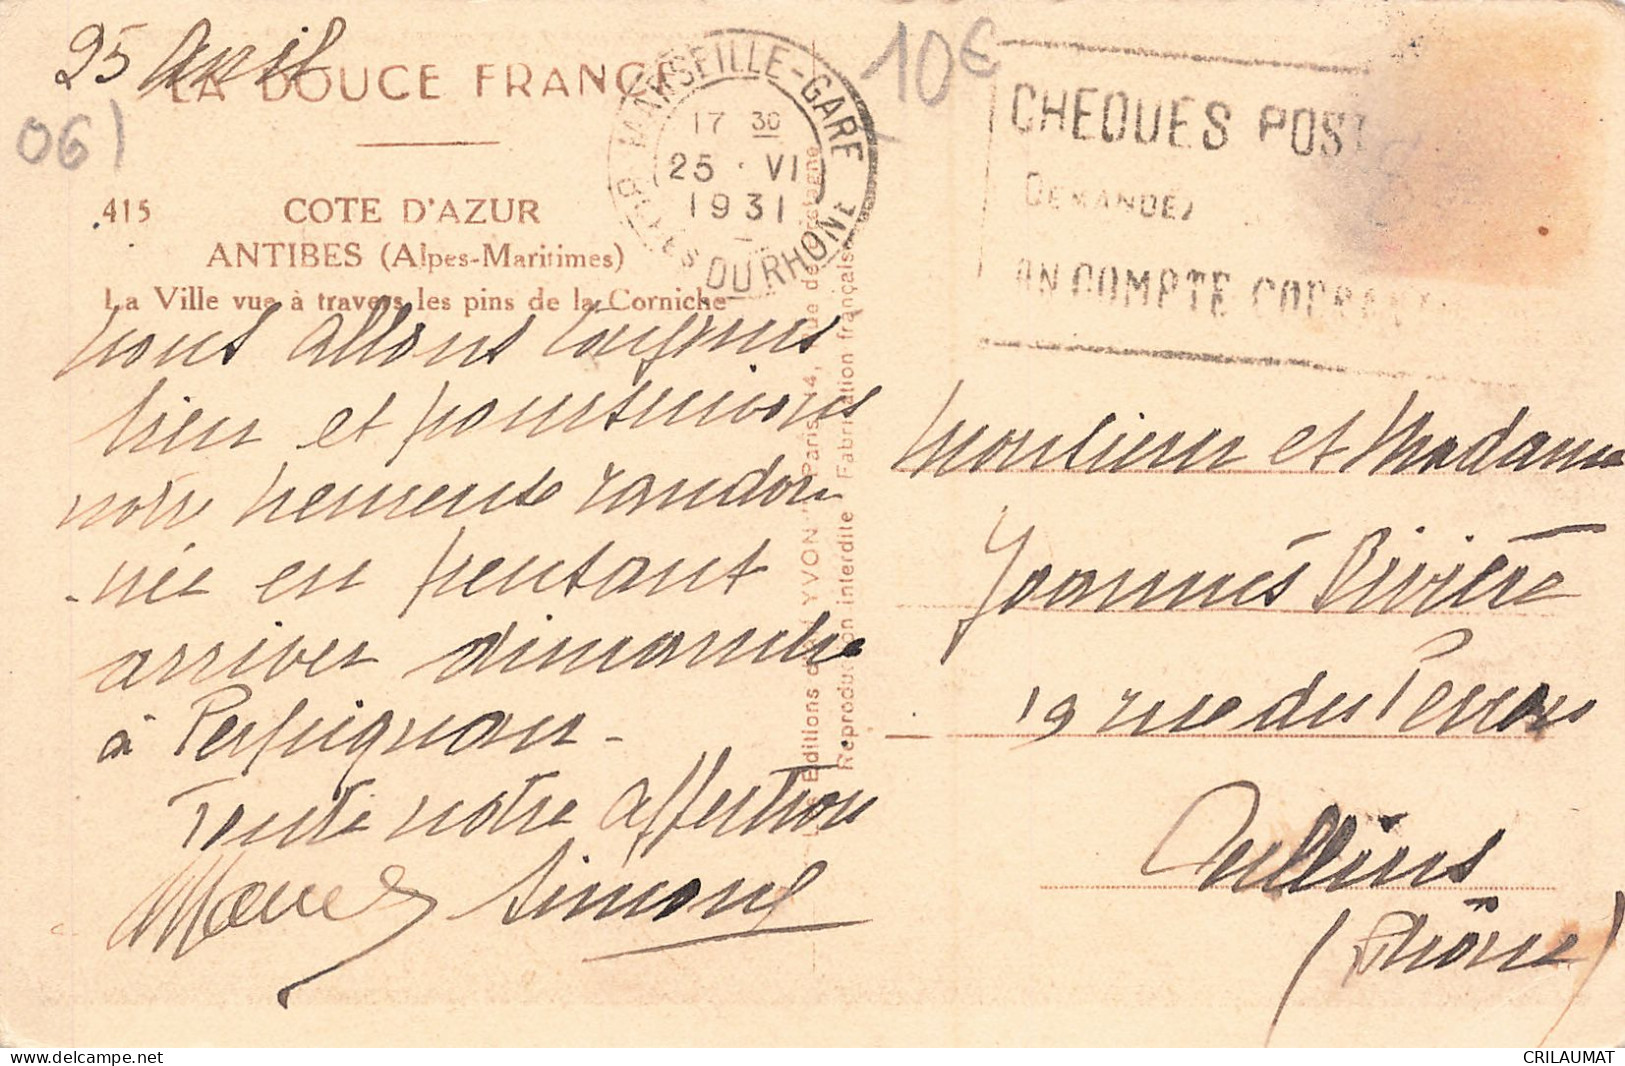 25 Avril
LA DOUCE FRANCE
06)
415 COTE D'AZUR
ANTIBES (Alpes-Maritimes)
La Ville vue à travers les pins de la Corniche
MARSEILLE-GARE
17 30
25 · VI
1931
DU RHONE
10€
CHEQUES POST
DEMANDEZ
UN COMPTE COURANT
Nous allons toujours
bien et poursuivons
notre heureuse randon
-née en pensant
arriver dimanche
à Perpignan -
Toute notre affection
Marcel Simone
Les Editions d'art YVON Paris, 14, rue de Bretagne
Reproduction interdite Fabrication française
Monsieur et Madame
Joannès Rivière
19 rue du Perron
Oullins
(Rhône)
CRILAUMAT